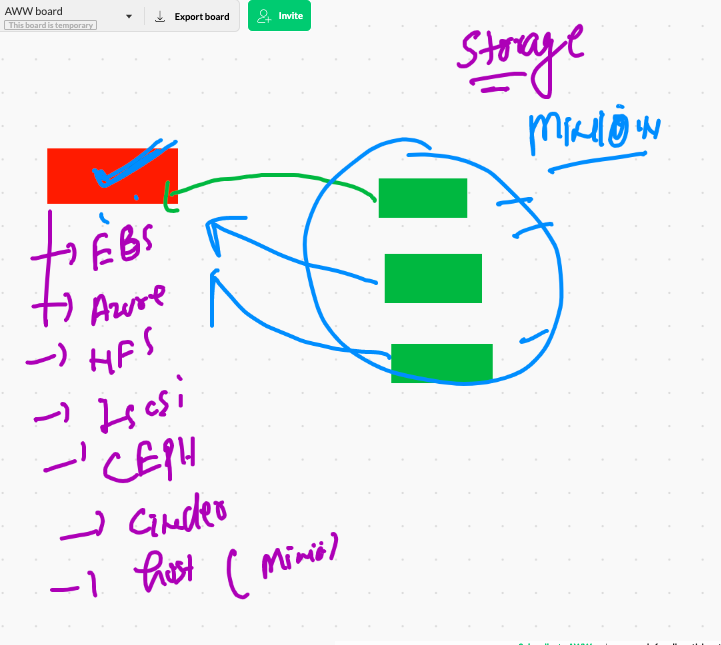 AWW board
This board is temporary
Export board
Invite
Storage
Minion
EBS
Azure
HFS
Iscsi
CEPH
Cinder
host (minio)